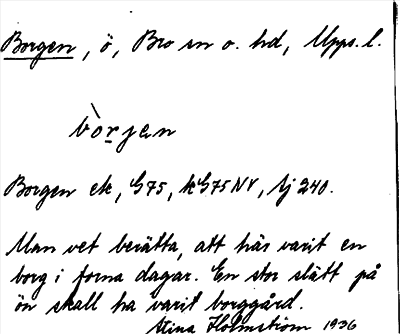 Borgen, ö, Bro sn o. hd, Upps. l.
bòrjen
Borgen ek, G75, hG75NV, Lj 240.
Man vet berätta, att här varit en
borg i forna dagar. En stor slätt på
ön skall ha varit borggård.
Stina Holmström 1936